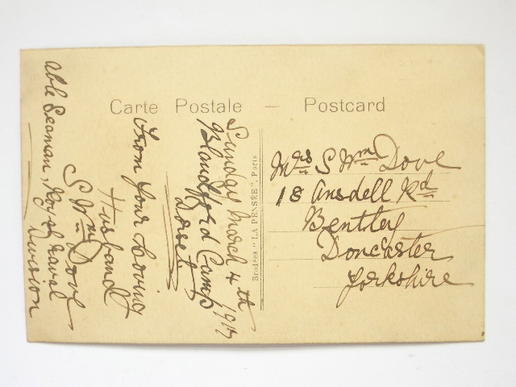 Carte Postale — Postcard
Sunday March 4th
1917
Blandford Camp
Dorset
From Your Loving
Husband
S Wm Dove
Able Seaman, Royal Naval
Division
Brodées "LA PENSÉE" - Paris
Mrs S Wm Dove
18 Ansdell Rd
Bentley
Doncaster
Yorkshire